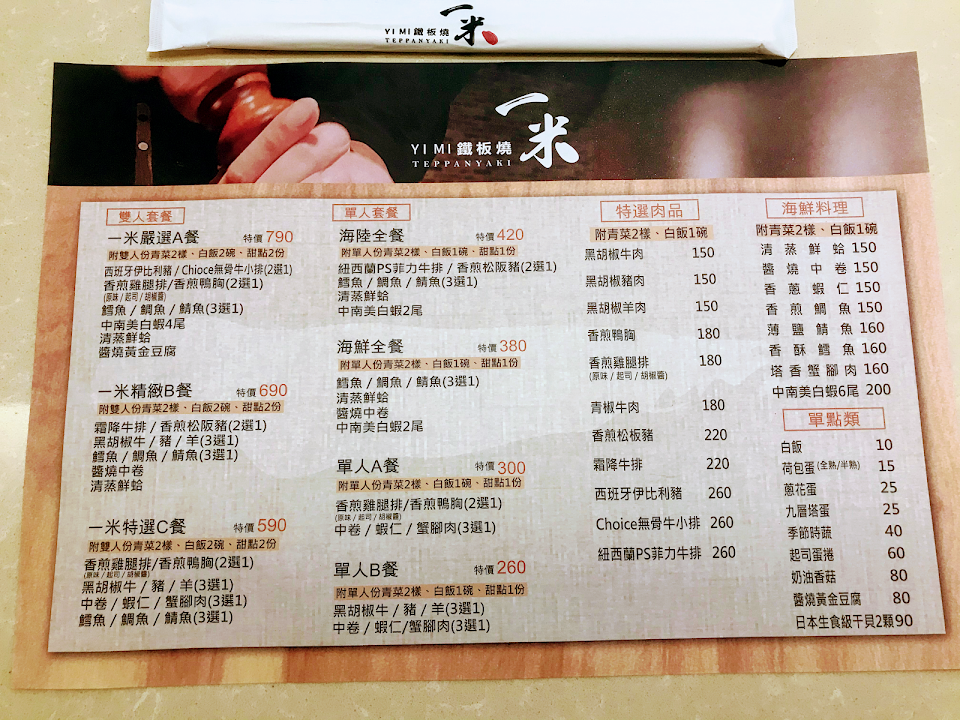 YI MI 鐵板燒 一米
TEPPANYAKI
YI MI 鐵板燒 一米
TEPPANYAKI
雙人套餐
一米嚴選A餐 特價 790
附雙人份青菜2樣、白飯2碗、甜點2份
西班牙伊比利豬 / Chioce無骨牛小排(2選1)
香煎雞腿排/香煎鴨胸(2選1)
(原味 / 起司 / 胡椒醬)
鱈魚 / 鯛魚 / 鯖魚(3選1)
中南美白蝦4尾
清蒸鮮蛤
醬燒黃金豆腐
一米精緻B餐 特價 690
附雙人份青菜2樣、白飯2碗、甜點2份
霜降牛排 / 香煎松阪豬(2選1)
黑胡椒牛 / 豬 / 羊(3選1)
鱈魚 / 鯛魚 / 鯖魚(3選1)
醬燒中卷
清蒸鮮蛤
一米特選C餐 特價 590
附雙人份青菜2樣、白飯2碗、甜點2份
香煎雞腿排/香煎鴨胸(2選1)
(原味 / 起司 / 胡椒醬)
黑胡椒牛 / 豬 / 羊(3選1)
中卷 / 蝦仁 / 蟹腳肉(3選1)
鱈魚 / 鯛魚 / 鯖魚(3選1)
單人套餐
海陸全餐 特價 420
附單人份青菜2樣、白飯1碗、甜點1份
紐西蘭PS菲力牛排 / 香煎松阪豬(2選1)
鱈魚 / 鯛魚 / 鯖魚(3選1)
清蒸鮮蛤
中南美白蝦2尾
海鮮全餐 特價 380
附單人份青菜2樣、白飯1碗、甜點1份
鱈魚 / 鯛魚 / 鯖魚(3選1)
清蒸鮮蛤
醬燒中卷
中南美白蝦2尾
單人A餐 特價 300
附單人份青菜2樣、白飯1碗、甜點1份
香煎雞腿排/香煎鴨胸(2選1)
(原味 / 起司 / 胡椒醬)
中卷 / 蝦仁 / 蟹腳肉(3選1)
單人B餐 特價 260
附單人份青菜2樣、白飯1碗、甜點1份
黑胡椒牛 / 豬 / 羊(3選1)
中卷 / 蝦仁/ 蟹腳肉(3選1)
特選肉品
附青菜2樣、白飯1碗
黑胡椒牛肉 150
黑胡椒豬肉 150
黑胡椒羊肉 150
香煎鴨胸 180
香煎雞腿排 180
(原味 / 起司 / 胡椒醬)
青椒牛肉 180
香煎松板豬 220
霜降牛排 220
西班牙伊比利豬 260
Choice無骨牛小排 260
紐西蘭PS菲力牛排 260
海鮮料理
附青菜2樣、白飯1碗
清蒸鮮蛤 150
醬燒中卷 150
香蔥蝦仁 150
香煎鯛魚 150
薄鹽鯖魚 160
香酥鱈魚 160
塔香蟹腳肉 160
中南美白蝦6尾 200
單點類
白飯 10
荷包蛋(全熟/半熟) 15
蔥花蛋 25
九層塔蛋 25
季節時蔬 40
起司蛋捲 60
奶油香菇 80
醬燒黃金豆腐 80
日本生食級干貝2顆 90